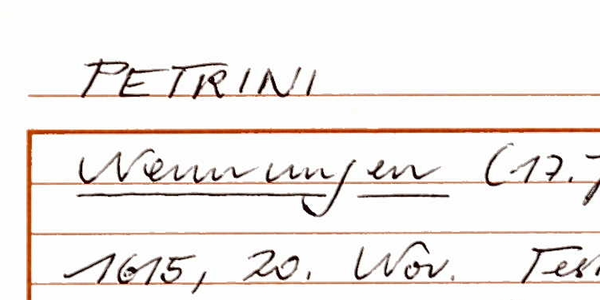 PETRINI
Nennungen (17.
1615, 20. Nov. Tes